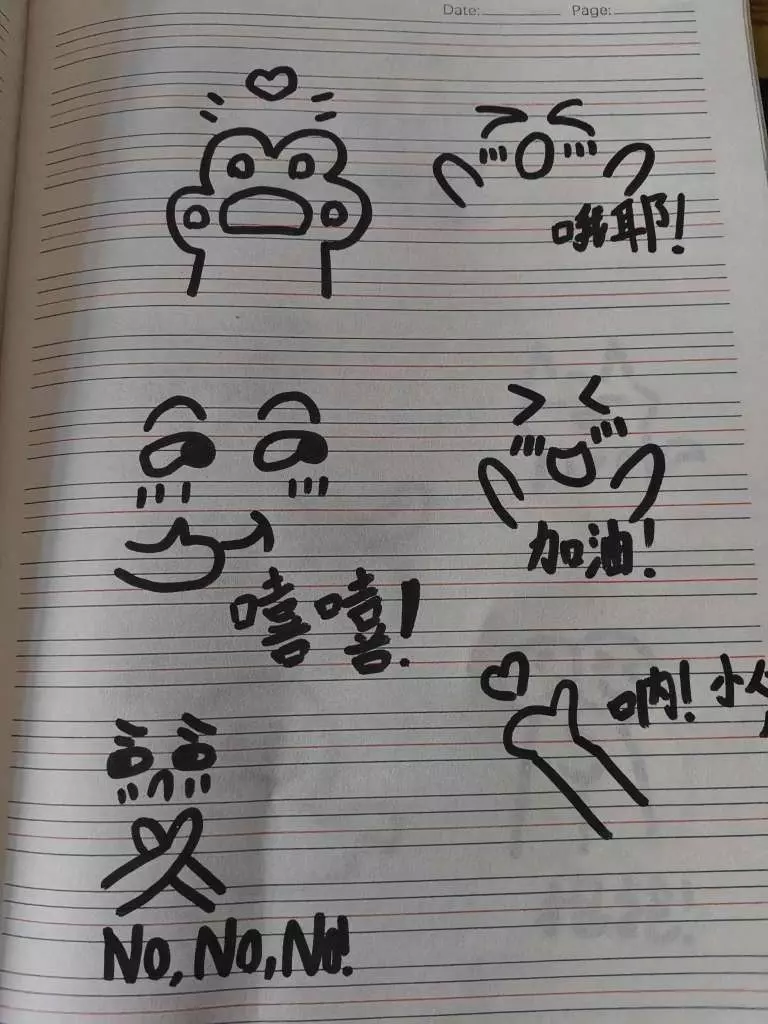 Date: Page:
哦耶!
加油!
嘻嘻!
呐!小
No, No, No!